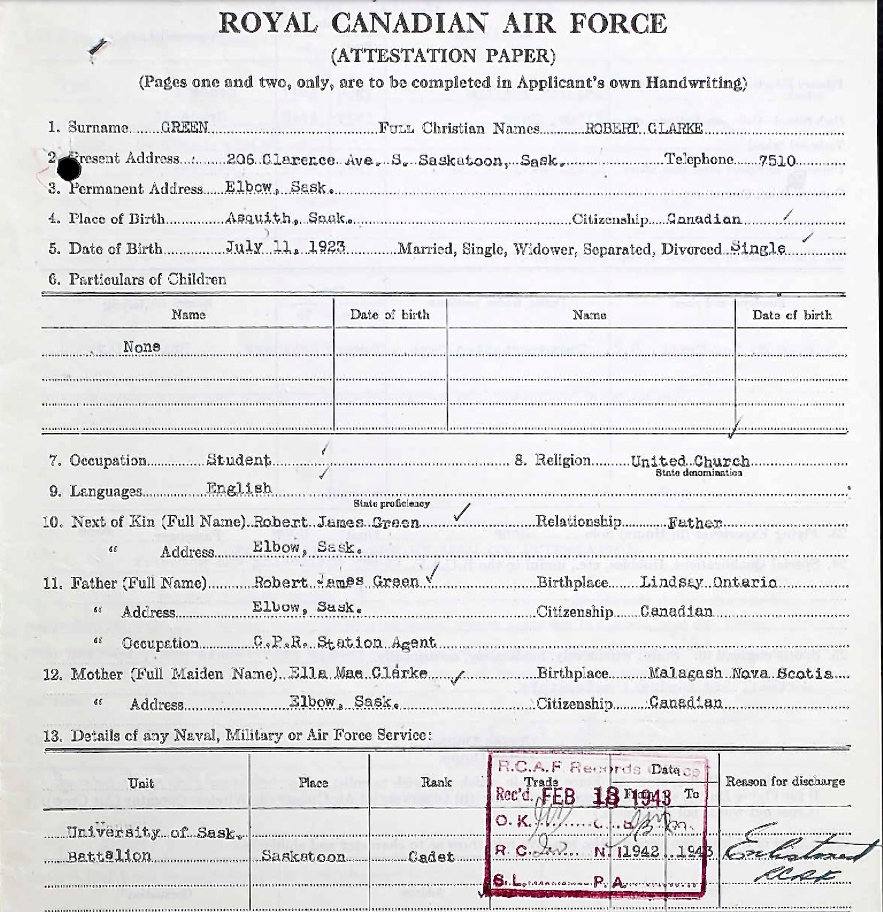 ROYAL CANADIAN AIR FORCE
(ATTESTATION PAPER)
(Pages one and two, only, are to be completed in Applicant's own Handwriting)
1. Surname GREEN Full Christian Names ROBERT CLARKE
2. Present Address 206 Clarence Ave. S. Saskatoon, Sask. Telephone 7510
3. Permanent Address Elbow, Sask.
4. Place of Birth Asquith, Sask. Citizenship Canadian
5. Date of Birth July 11, 1923 Married, Single, Widower, Separated, Divorced Single
6. Particulars of Children
Name Date of birth Name Date of birth
None
7. Occupation Student 8. Religion United Church
State denomination
9. Languages English
State proficiency
10. Next of Kin (Full Name) Robert James Green Relationship Father
" Address Elbow, Sask.
11. Father (Full Name) Robert James Green Birthplace Lindsay Ontario
" Address Elbow, Sask. Citizenship Canadian
" Occupation C.P.R. Station Agent
12. Mother (Full Maiden Name) Ella Mae Clarke Birthplace Malagash Nova Scotia
" Address Elbow, Sask. Citizenship Canadian
13. Details of any Naval, Military or Air Force Service:
R.C.A.F Records Date
Unit Place Rank Trade From To Reason for discharge
Rec'd. FEB 18 1943
O.K.
University of Sask.
Battalion Saskatoon Cadet 1942 1943 Enlisted
R.C. N.
RCAF
S.L. P.A.